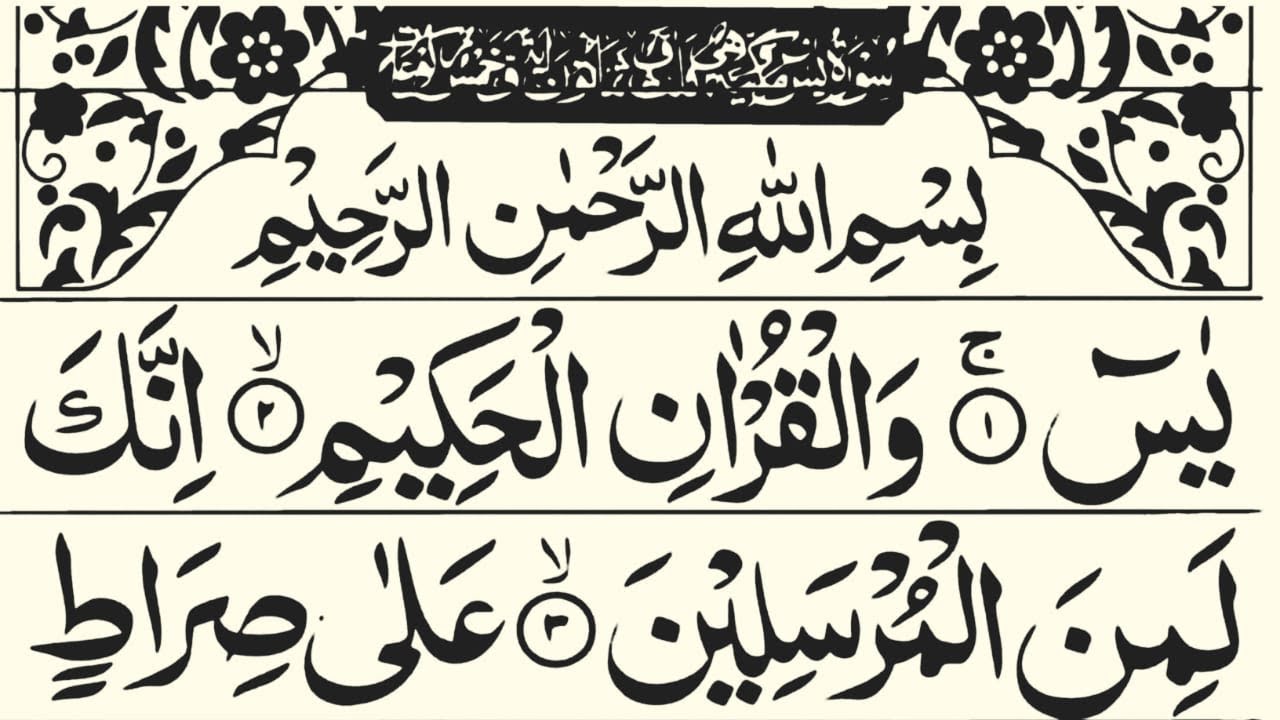 سُوْرَةُ يٰسٓ مَكِّيَّةٌ
بِسْمِ اللّٰهِ الرَّحْمٰنِ الرَّحِيْمِ
يٰسٓ ۚ ﴿۱﴾ وَالْقُرْاٰنِ الْحَكِيْمِ ۙ ﴿۲﴾ اِنَّكَ
لَمِنَ الْمُرْسَلِيْنَ ۙ ﴿۳﴾ عَلٰى صِرَاطٍ